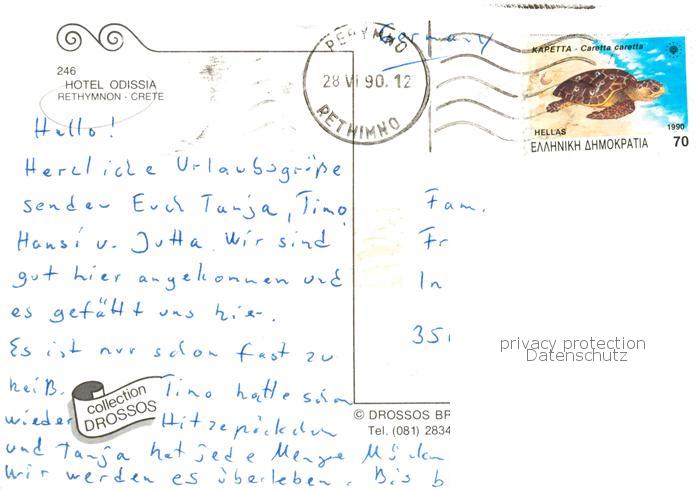 246
HOTEL ODISSIA
RETHYMNON - CRETE
Hallo!
Herzliche Urlaubsgrüße
senden Euch Tanja, Timo,
Hansi u. Jutta. Wir sind
gut hier angekommen und
es gefällt uns hier.
Es ist nur schon fast zu
heiß. Timo hatte schon
wieder Hitzepöckchen
und Tanja hat jede Menge Mücken
Wir werden es überleben. Bis b
collection
DROSSOS
ΡΕΘΥΜΝΟ
28 VI 90.12
RETHIMNO
Germany
ΚΑΡΕΤΤΑ - Caretta caretta
HELLAS
1990
ΕΛΛΗΝΙΚΗ ΔΗΜΟΚΡΑΤΙΑ
70
Fam.
Fr
In
351
privacy protection
Datenschutz
© DROSSOS BR
Tel. (081) 2834